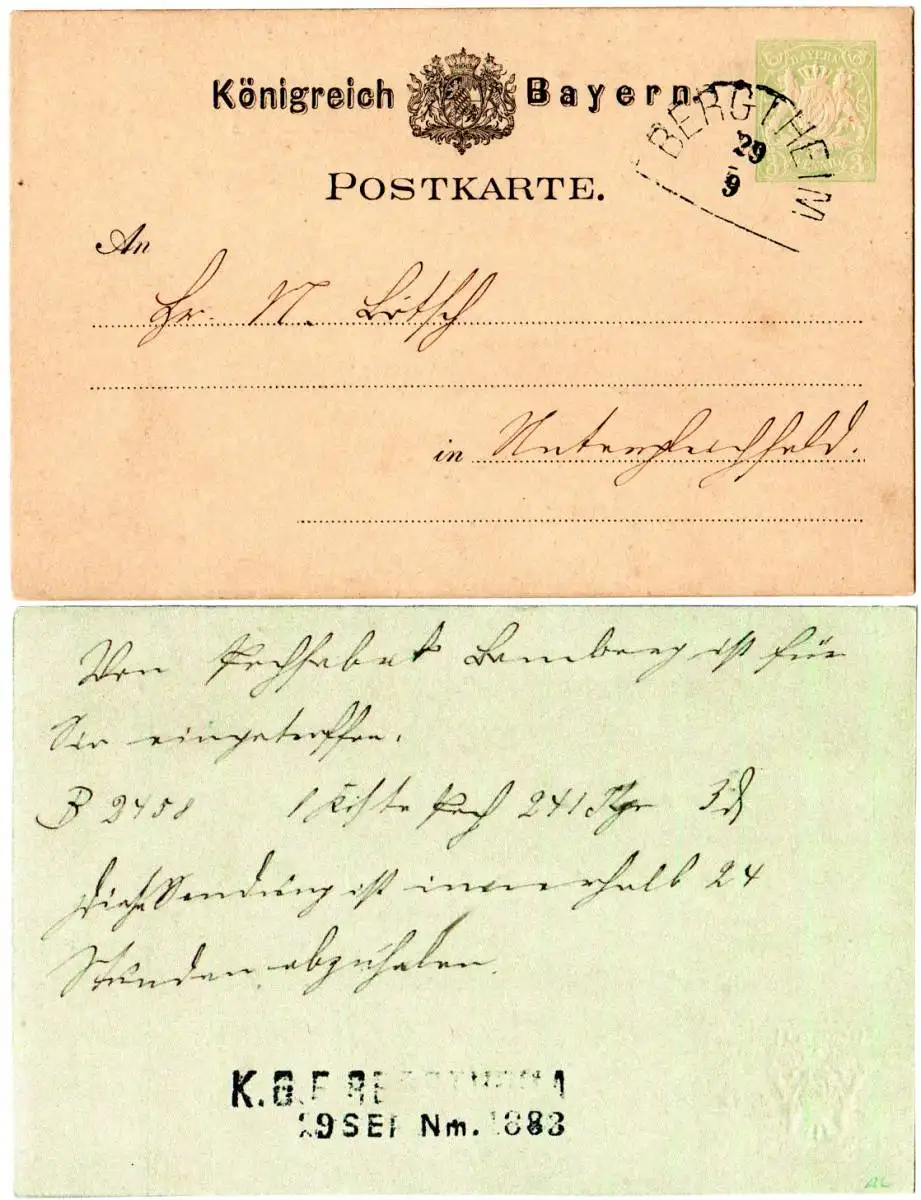 Königreich Bayern.
BAYERN
BERGTHEIM
29
9
3 3
POSTKARTE.
An
Hr. N. Lötsch
in Unterpleichfeld.
Von Pechfabrik Bamberg ist für
Sie eingetroffen.
B 2458 1 Kiste Pech 241 Kgr
Diese Sendung ist innerhalb 24
Stunden abzuholen.
K.B.E. BERGTHEIM
29 SEP Nm. 1883
AL